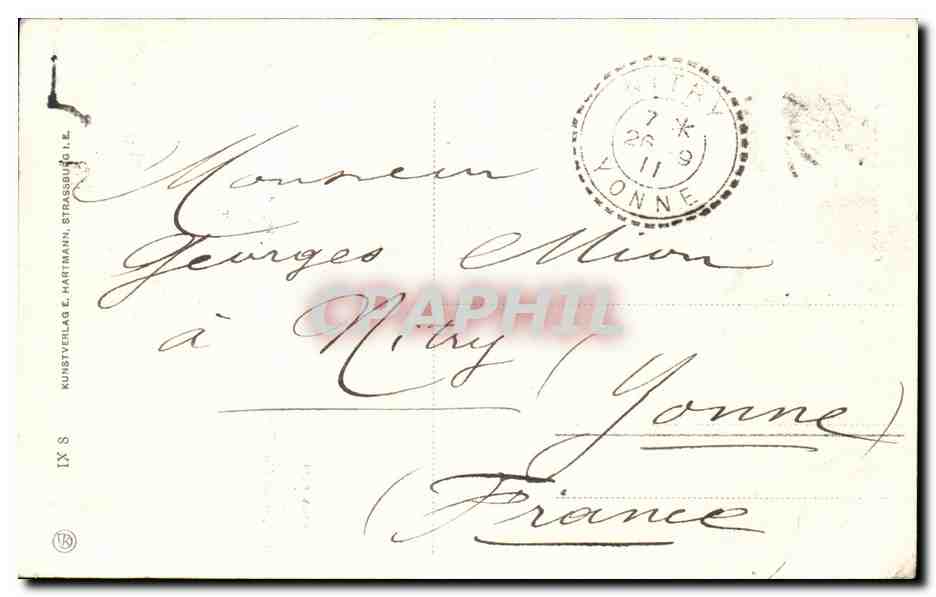 NITRY
7 *
26 9
11
YONNE
Monsieur
Georges Mion
à Nitry (Yonne)
(France)
KUNSTVERLAG E. HARTMANN, STRASSBURG I. E.
IX 8
CPAPHIL